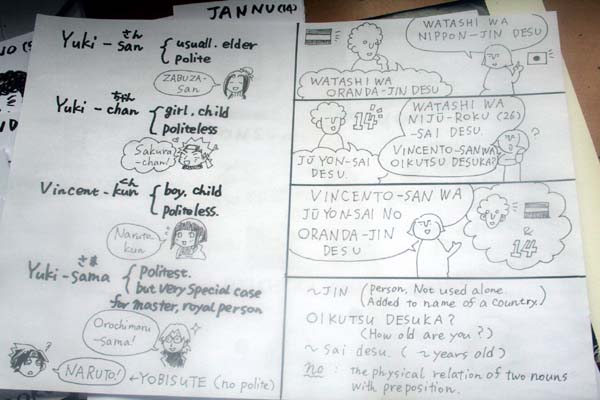 JANNU(14)
Yuki-san
さん
usuall. elder
polite
ZABUZA-
san
Yuki-chan
ちゃん
girl, child
politeless
Sakura
-chan!
Vincent-kun
くん
boy, child
politeless.
Naruto-
kun
Yuki-sama
さま
Politest.
but very special case
for master, royal person
Orochimaru
-sama!
NARUTO!
←YOBISUTE (no polite)
WATASHI WA
NIPPON-JIN DESU
WATASHI WA
ORANDA-JIN DESU
14
JŪYON-SAI
DESU.
WATASHI WA
NIJŪ-ROKU (26)
-SAI DESU.
VINCENTO-SAN WA
OIKUTSU DESUKA?
?
VINCENTO-SAN WA
JŪYON-SAI NO
ORANDA-JIN
DESU.
&
14
~JIN (person. Not used alone.
Added to name of a country.)
OIKUTSU DESUKA?
(How old are you?)
~sai desu. (~years old)
no: the physical relation of two nouns
with preposition.